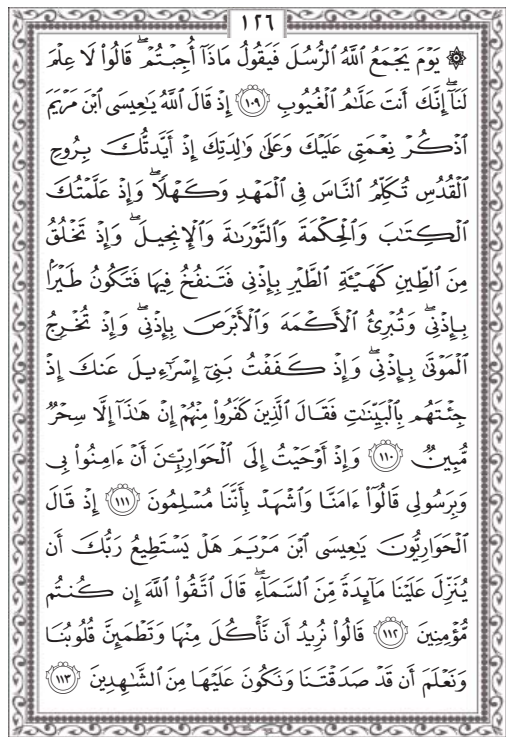 ١٢٦
۞ يَوْمَ يَجْمَعُ ٱللَّهُ ٱلرُّسُلَ فَيَقُولُ مَاذَآ أُجِبْتُمْ ۖ قَالُوا۟ لَا عِلْمَ
لَنَآ ۖ إِنَّكَ أَنتَ عَلَّٰمُ ٱلْغُيُوبِ ١٠٩ إِذْ قَالَ ٱللَّهُ يَٰعِيسَى ٱبْنَ مَرْيَمَ
ٱذْكُرْ نِعْمَتِى عَلَيْكَ وَعَلَىٰ وَٰلِدَتِكَ إِذْ أَيَّدتُّكَ بِرُوحِ
ٱلْقُدُسِ تُكَلِّمُ ٱلنَّاسَ فِى ٱلْمَهْدِ وَكَهْلًا ۖ وَإِذْ عَلَّمْتُكَ
ٱلْكِتَٰبَ وَٱلْحِكْمَةَ وَٱلتَّوْرَىٰةَ وَٱلْإِنجِيلَ ۖ وَإِذْ تَخْلُقُ
مِنَ ٱلطِّينِ كَهَيْـَٔةِ ٱلطَّيْرِ بِإِذْنِى فَتَنفُخُ فِيهَا فَتَكُونُ طَيْرًۢا
بِإِذْنِى ۖ وَتُبْرِئُ ٱلْأَكْمَهَ وَٱلْأَبْرَصَ بِإِذْنِى ۖ وَإِذْ تُخْرِجُ
ٱلْمَوْتَىٰ بِإِذْنِى ۖ وَإِذْ كَفَفْتُ بَنِىٓ إِسْرَٰٓءِيلَ عَنكَ إِذْ
جِئْتَهُم بِٱلْبَيِّنَٰتِ فَقَالَ ٱلَّذِينَ كَفَرُوا۟ مِنْهُمْ إِنْ هَٰذَآ إِلَّا سِحْرٌ
مُّبِينٌ ١١٠ وَإِذْ أَوْحَيْتُ إِلَى ٱلْحَوَارِيِّـۧنَ أَنْ ءَامِنُوا۟ بِى
وَبِرَسُولِى قَالُوٓا۟ ءَامَنَّا وَٱشْهَدْ بِأَنَّنَا مُسْلِمُونَ ١١١ إِذْ قَالَ
ٱلْحَوَارِيُّونَ يَٰعِيسَى ٱبْنَ مَرْيَمَ هَلْ يَسْتَطِيعُ رَبُّكَ أَن
يُنَزِّلَ عَلَيْنَا مَآئِدَةً مِّنَ ٱلسَّمَآءِ ۖ قَالَ ٱتَّقُوا۟ ٱللَّهَ إِن كُنتُم
مُّؤْمِنِينَ ١١٢ قَالُوا۟ نُرِيدُ أَن نَّأْكُلَ مِنْهَا وَتَطْمَئِنَّ قُلُوبُنَا
وَنَعْلَمَ أَن قَدْ صَدَقْتَنَا وَنَكُونَ عَلَيْهَا مِنَ ٱلشَّٰهِدِينَ ١١٣